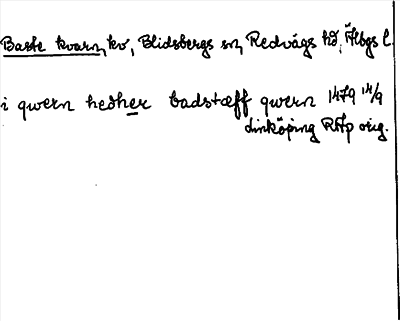 Baste kvarn, kv, Blidsbergs sn, Redvägs hd, Älvbgs l.
i qwern hedher badstæff qwern 1479 14/9
Linköping RAp orig.